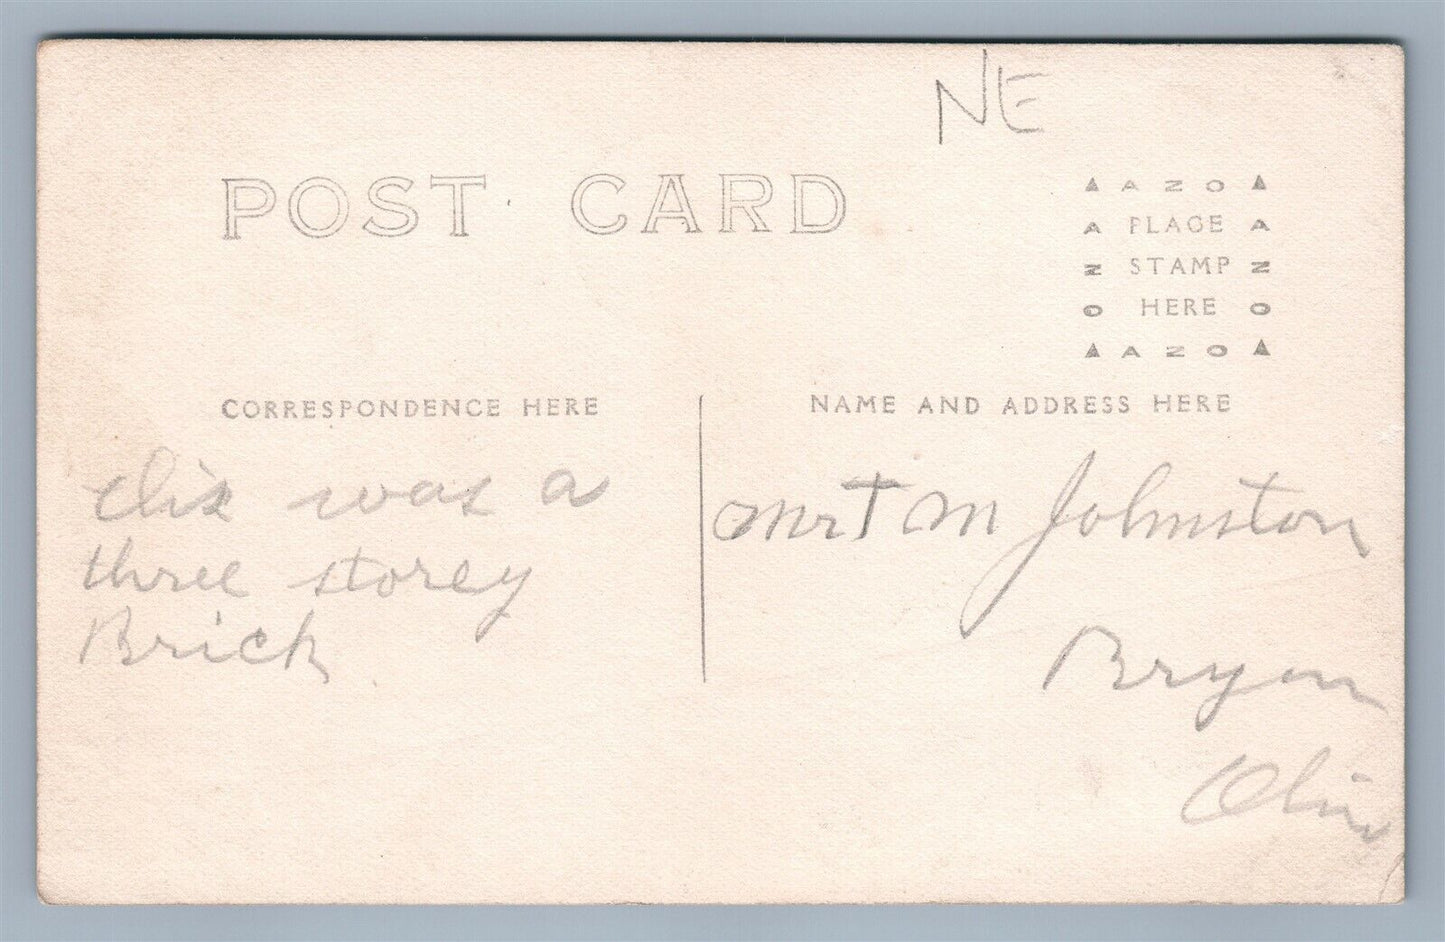 NE
POST CARD
AZO
PLACE
STAMP
HERE
AZO
AZO
AZO
CORRESPONDENCE HERE
NAME AND ADDRESS HERE
was a
three storey
Brick
Mr T M Johnston
Bryan
Ohio